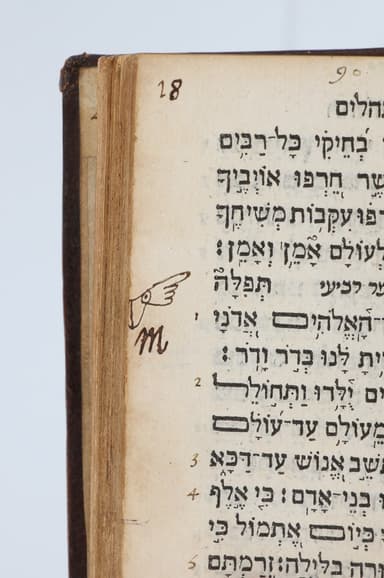 18
90
תהלים
בְחֵיקִי כָּל־רַבִּים
שֶׁר חֵרְפוּ אוֹיְבֶיךָ
רְפוּ עִקְּבוֹת מְשִׁיחֶךָ
לְעוֹלָם אָמֵן וְאָמֵן׃
רביעי תְּפִלָּה
1 הָאֱלֹהִים אֲדֹנָי
M
ית לָּנוּ בְּדֹר וָדֹר׃
2 ים יֻלָּדוּ וַתְּחוֹלֵל
מֵעוֹלָם עַד־עוֹלָם
3 תָּשֵׁב אֱנוֹשׁ עַד־דַּכָּא
4 בְנֵי־אָדָם׃ כִּי אֶלֶף
כְּיוֹם אֶתְמוֹל כִּי
5 וּרָה בַלָּיְלָה׃ זְרַמְתָּם